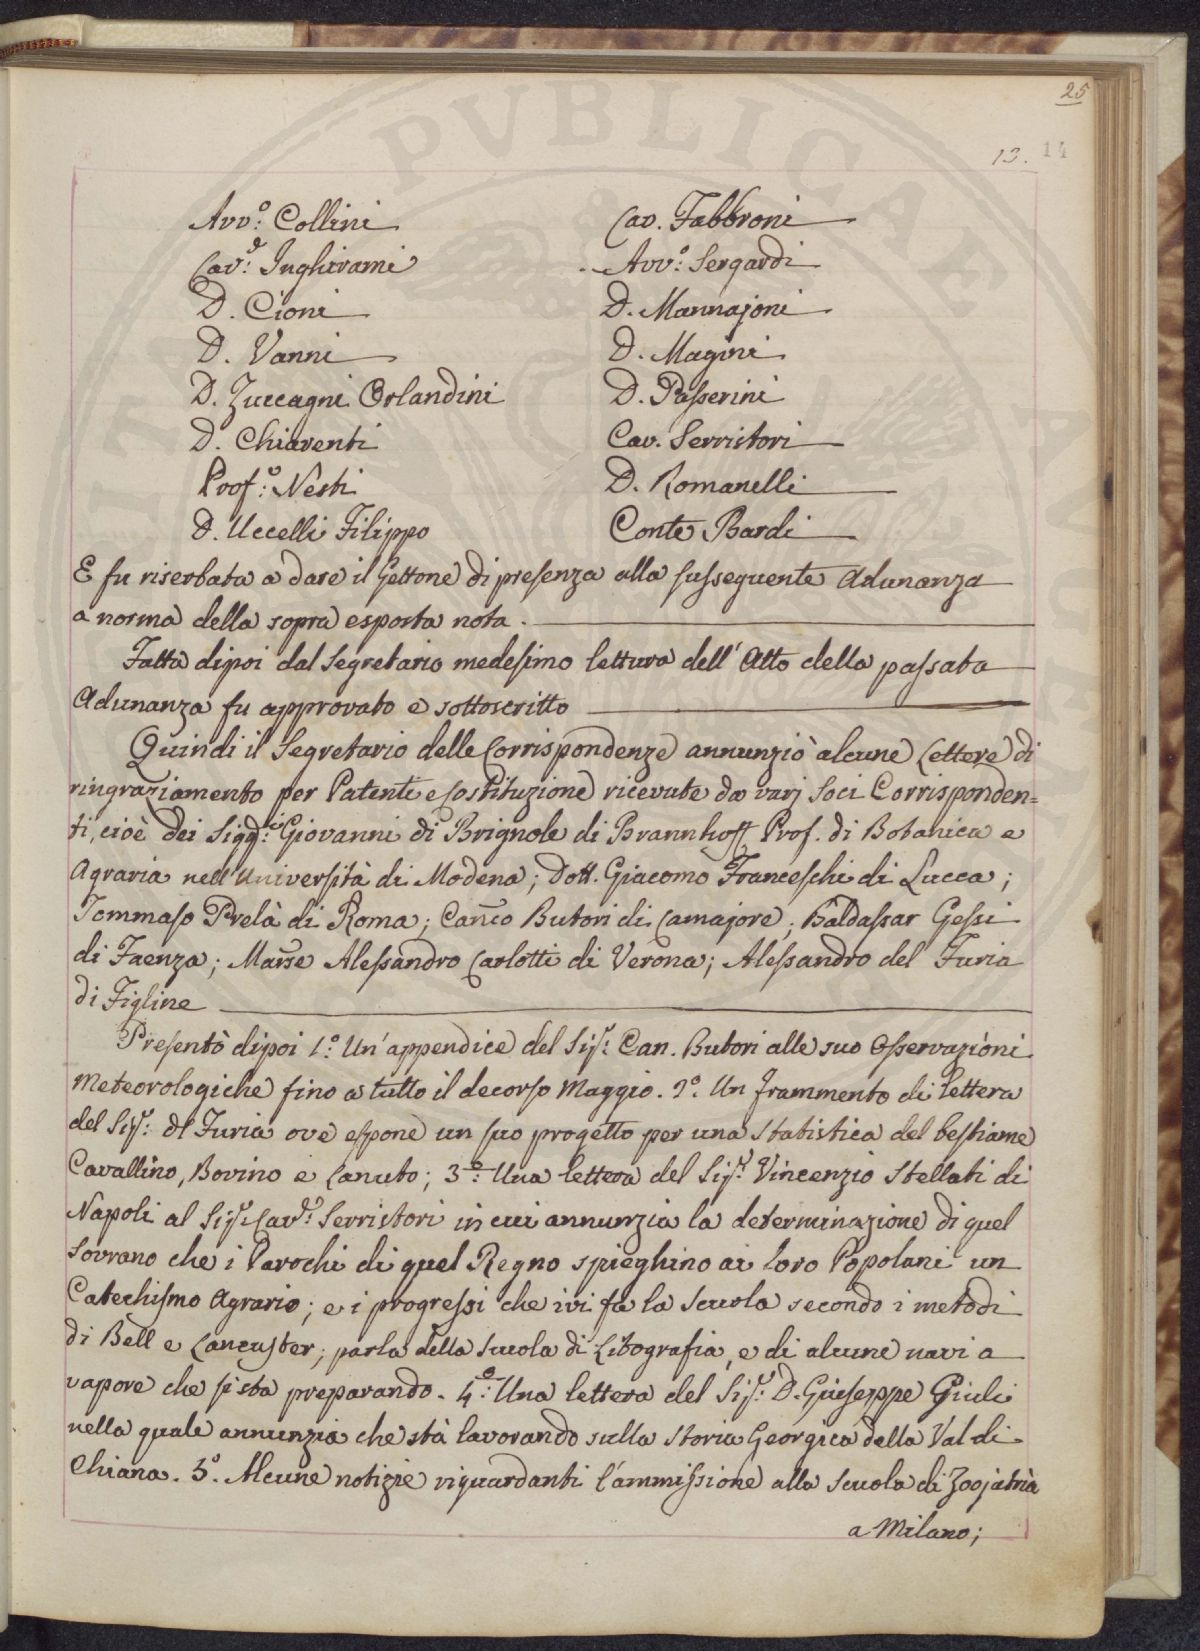 25
13. 14
Avv.º Collini Cav. Fabbroni
Cav.e Inghirami Avv.º Sergardi
D. Cioni D. Mannajoni
D. Vanni D. Magini
D. Zuccagni Orlandini D. Passerini
D. Chiarenti Cav. Serristori
Prof.º Nesti D. Romanelli
D. Uccelli Filippo Conte Bardi
E fu riserbata a dare il Gettone di presenza alla susseguente Adunanza
a norma della sopra esposta nota.
Fatta dipoi dal Segretario medesimo lettura dell'Atto della passata
Adunanza fu approvato e sottoscritto
Quindi il Segretario delle Corrispondenze annunziò alcune Lettere di
ringraziamento per Patente e sostituzione ricevute da varj Soci Corrisponden=
ti, cioè dei Sigg.ri Giovanni di Brignole di Brannhoff Prof. di Botanica e
Agraria nell'Università di Modena; Dott. Giacomo Franceschi di Lucca;
Tommaso Prelà di Roma; Can̅co Butori di Camajore; Baldassar Gessi
di Faenza; Mar̅se Alessandro Carlotti di Verona; Alessandro del Furia
di Figline
Presentò dipoi 1.º Un'appendice del Sig.r Can. Butori alle sue Osservazioni
Meteorologiche fino a tutto il decorso Maggio. 2º. Un frammento di lettera
del Sig.r del Furia ove espone un suo progetto per una Statistica del bestiame
Cavallino, Bovino e Lanuto; 3º. Una lettera del Sig.r Vincenzio Stellati di
Napoli al Sig.r Cav.e Serristori in cui annunzia la determinazione di quel
Sovrano che i Parochi di quel Regno spieghino ai loro Popolani un
Catechismo Agrario; e i progressi che ivi fa la scuola secondo i metodi
di Bell e Lancaster; parla della scuola di Litografia, e di alcune navi a
vapore che si sta preparando. 4º. Una lettera del Sig.r D. Giuseppe Giuli
nella quale annunzia che stà lavorando sulla storia Georgica della Val di
Chiana. 5º. Alcune notizie riguardanti l'ammissione alla scuola di Zoojatria
a Milano;
PVBLICAE